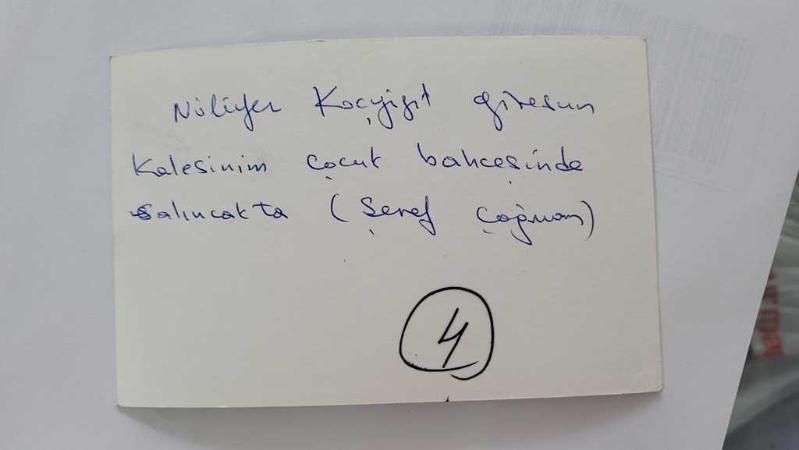 Nilüfer Koçyiğit giresun
Kalesinim çocuk bahçesinde
salıncakta (Şeref Çoğman)
4